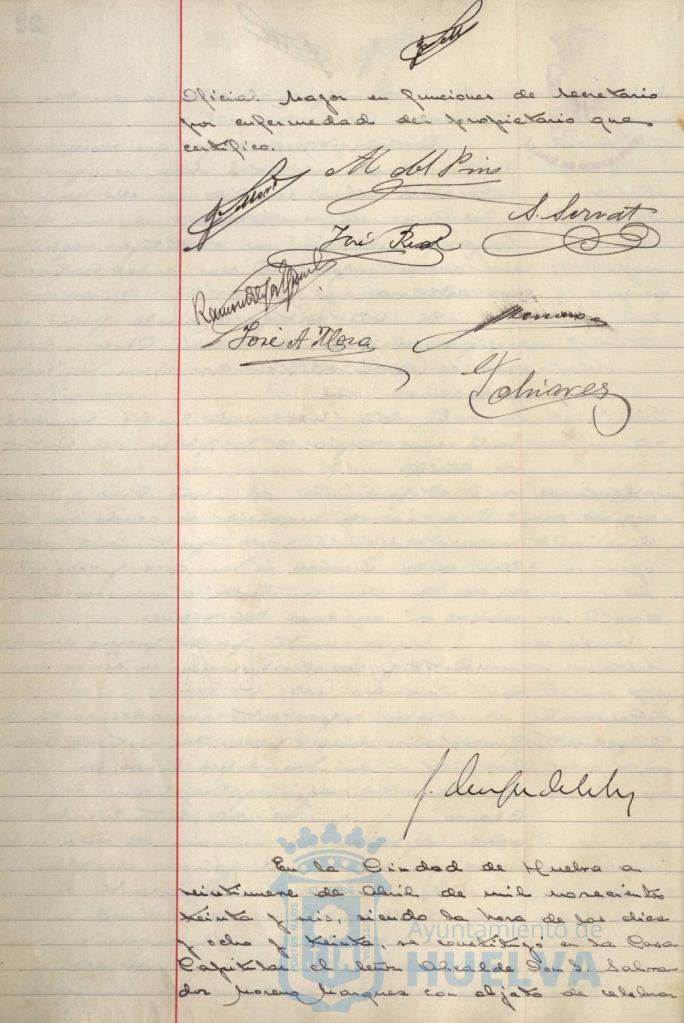 Oficial Mayor en funciones de Secretario
por enfermedad del propietario que
certifico.
M del Pino
S. Servat
José Real
José A Mora
Moreno
En la Ciudad de Huelva a
veintinueve de Abril de mil novecientos
treinta y seis, siendo la hora de las diez
y ocho y treinta, se constituyó en la Casa
Capitular el Señor Alcalde Don S. Salva-
dor Moreno Marquez con objeto de celebrar
Ayuntamiento de
HUELVA